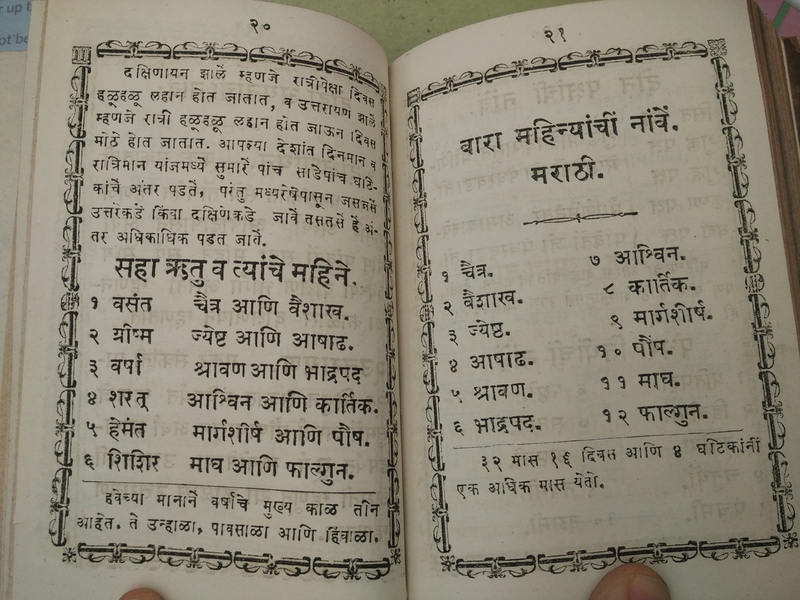 २०
दक्षिणायन झालें म्हणजे रात्रीपेक्षां दिवस
हळूहळू लहान होत जातात, व उत्तरायण झालें
म्हणजे रात्री हळूहळू लहान होत जाऊन दिवस
मोठे होत जातात. आपल्या देशांत दिनमान व
रात्रिमान यांजमध्यें सुमारें पांच साडेपांच घटि-
कांचें अंतर पडतें, परंतु मध्यरेषेपासून जसजसें
उत्तरेकडे किंवा दक्षिणकडे जावें तसतसें हें अं-
तर अधिकाधिक पडत जातें.
सहा ऋतु व त्यांचे महिने.
१ वसंत चैत्र आणि वैशाख.
२ ग्रीष्म ज्येष्ट आणि आषाढ.
३ वर्षा श्रावण आणि भाद्रपद
४ शरत् आश्विन आणि कार्तिक.
५ हेमंत मार्गशीर्ष आणि पौष.
६ शिशिर माघ आणि फाल्गुन.
हवेच्या मानानें वर्षाचे मुख्य काळ तीन
आहेत. ते उन्हाळा, पावसाळा आणि हिंवाळा.
२१
बारा महिन्यांचीं नांवें.
मराठी.
१ चैत्र. ७ आश्विन.
२ वैशाख. ८ कार्तिक.
३ ज्येष्ट. ९ मार्गशीर्ष.
४ आषाढ. १० पौष.
५ श्रावण. ११ माघ.
६ भाद्रपद. १२ फाल्गुन.
३२ मास १६ दिवस आणि ४ घटिकांनीं
एक अधिक मास येतो.